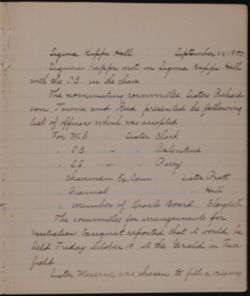 Sigma Kappa Hall September 24, 1902
Sigma Kappa met in Sigma Kappa Hall
with the I.S. in the chair.
The nominating committee Sisters Richard-
son, Towne and Reed presented the following
list of officers which was accepted.
For M.S. Sister Clark
" I.S. " Valentine
" L.S. " Perry
" Chairman Ex. Com. Sister Pratt
" Pianist " Hall
" Member of Oracle Board
The committee for arrangements for
initiation banquet reported that it would be
held Friday October 17 at the Gerald in Fair-
field.
Sister Meserve was chosen to fill a vacancy